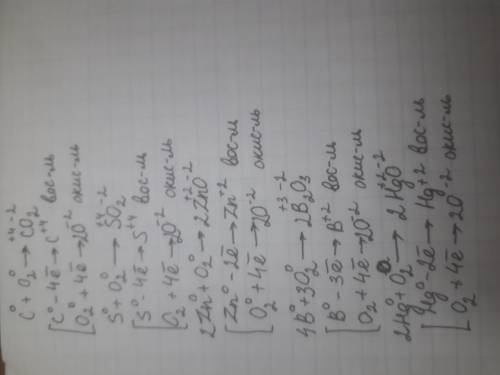 C⁰ + O₂⁰ → C⁺⁴O₂⁻²
C⁰ - 4ē → C⁺⁴ вос-ль
O₂⁰ + 4ē → 2O⁻² окис-ль
S⁰ + O₂⁰ → S⁺⁴O₂⁻²
S⁰ - 4ē → S⁺⁴ вос-ль
O₂⁰ + 4ē → 2O⁻² окис-ль
2Zn⁰ + O₂⁰ → 2Zn⁺²O⁻²
Zn⁰ - 2ē → Zn⁺² вос-ль
O₂⁰ + 4ē → 2O⁻² окис-ль
4B⁰ + 3O₂⁰ → 2B₂⁺³O₃⁻²
B⁰ - 3ē → B⁺² вос-ль
O₂ + 4ē → 2O⁻² окис-ль
2Hg⁰ + O₂⁰ → 2Hg⁺²O⁻²
Hg⁰ - 2ē → Hg⁺² вос-ль
O₂⁰ + 4ē → 2O⁻² окис-ль